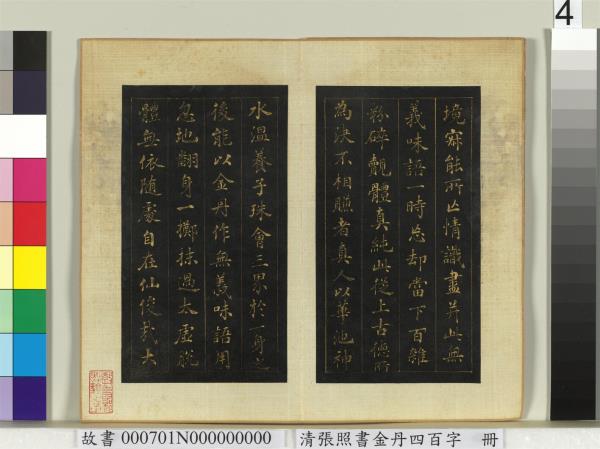 境寂能所亡情識盡并此無
義味語一時忘却當下百雜
粉碎觌體真純此從上古德所
為決不相賺者真人以華池神
水温養子珠會三界於一身之
後能以金丹作無義味語用
忽地翻身一擲抹過太虛脫
體無依隨處自在仙俊哉大
4
故書 000701N000000000
清張照書金丹四百字 冊